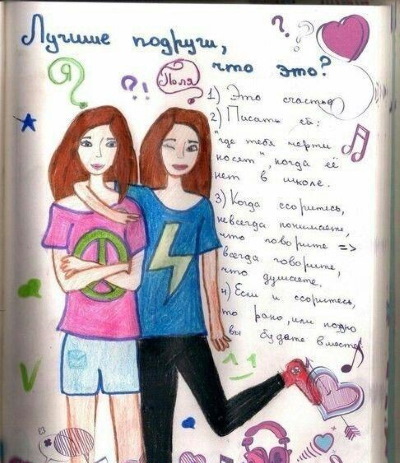 Лучшие подруги,
что это?
Я
Поля
?!
?
1) Это счастье
2) Писать ей:
"где тебя черти
носят", когда её
нет в школе.
3) Когда ссоритесь,
невсегда понимаете,
что говорите =>
всегда говорите,
что думаете.
4) Если и ссоритесь,
то рано, или поздно
вы будете вместе